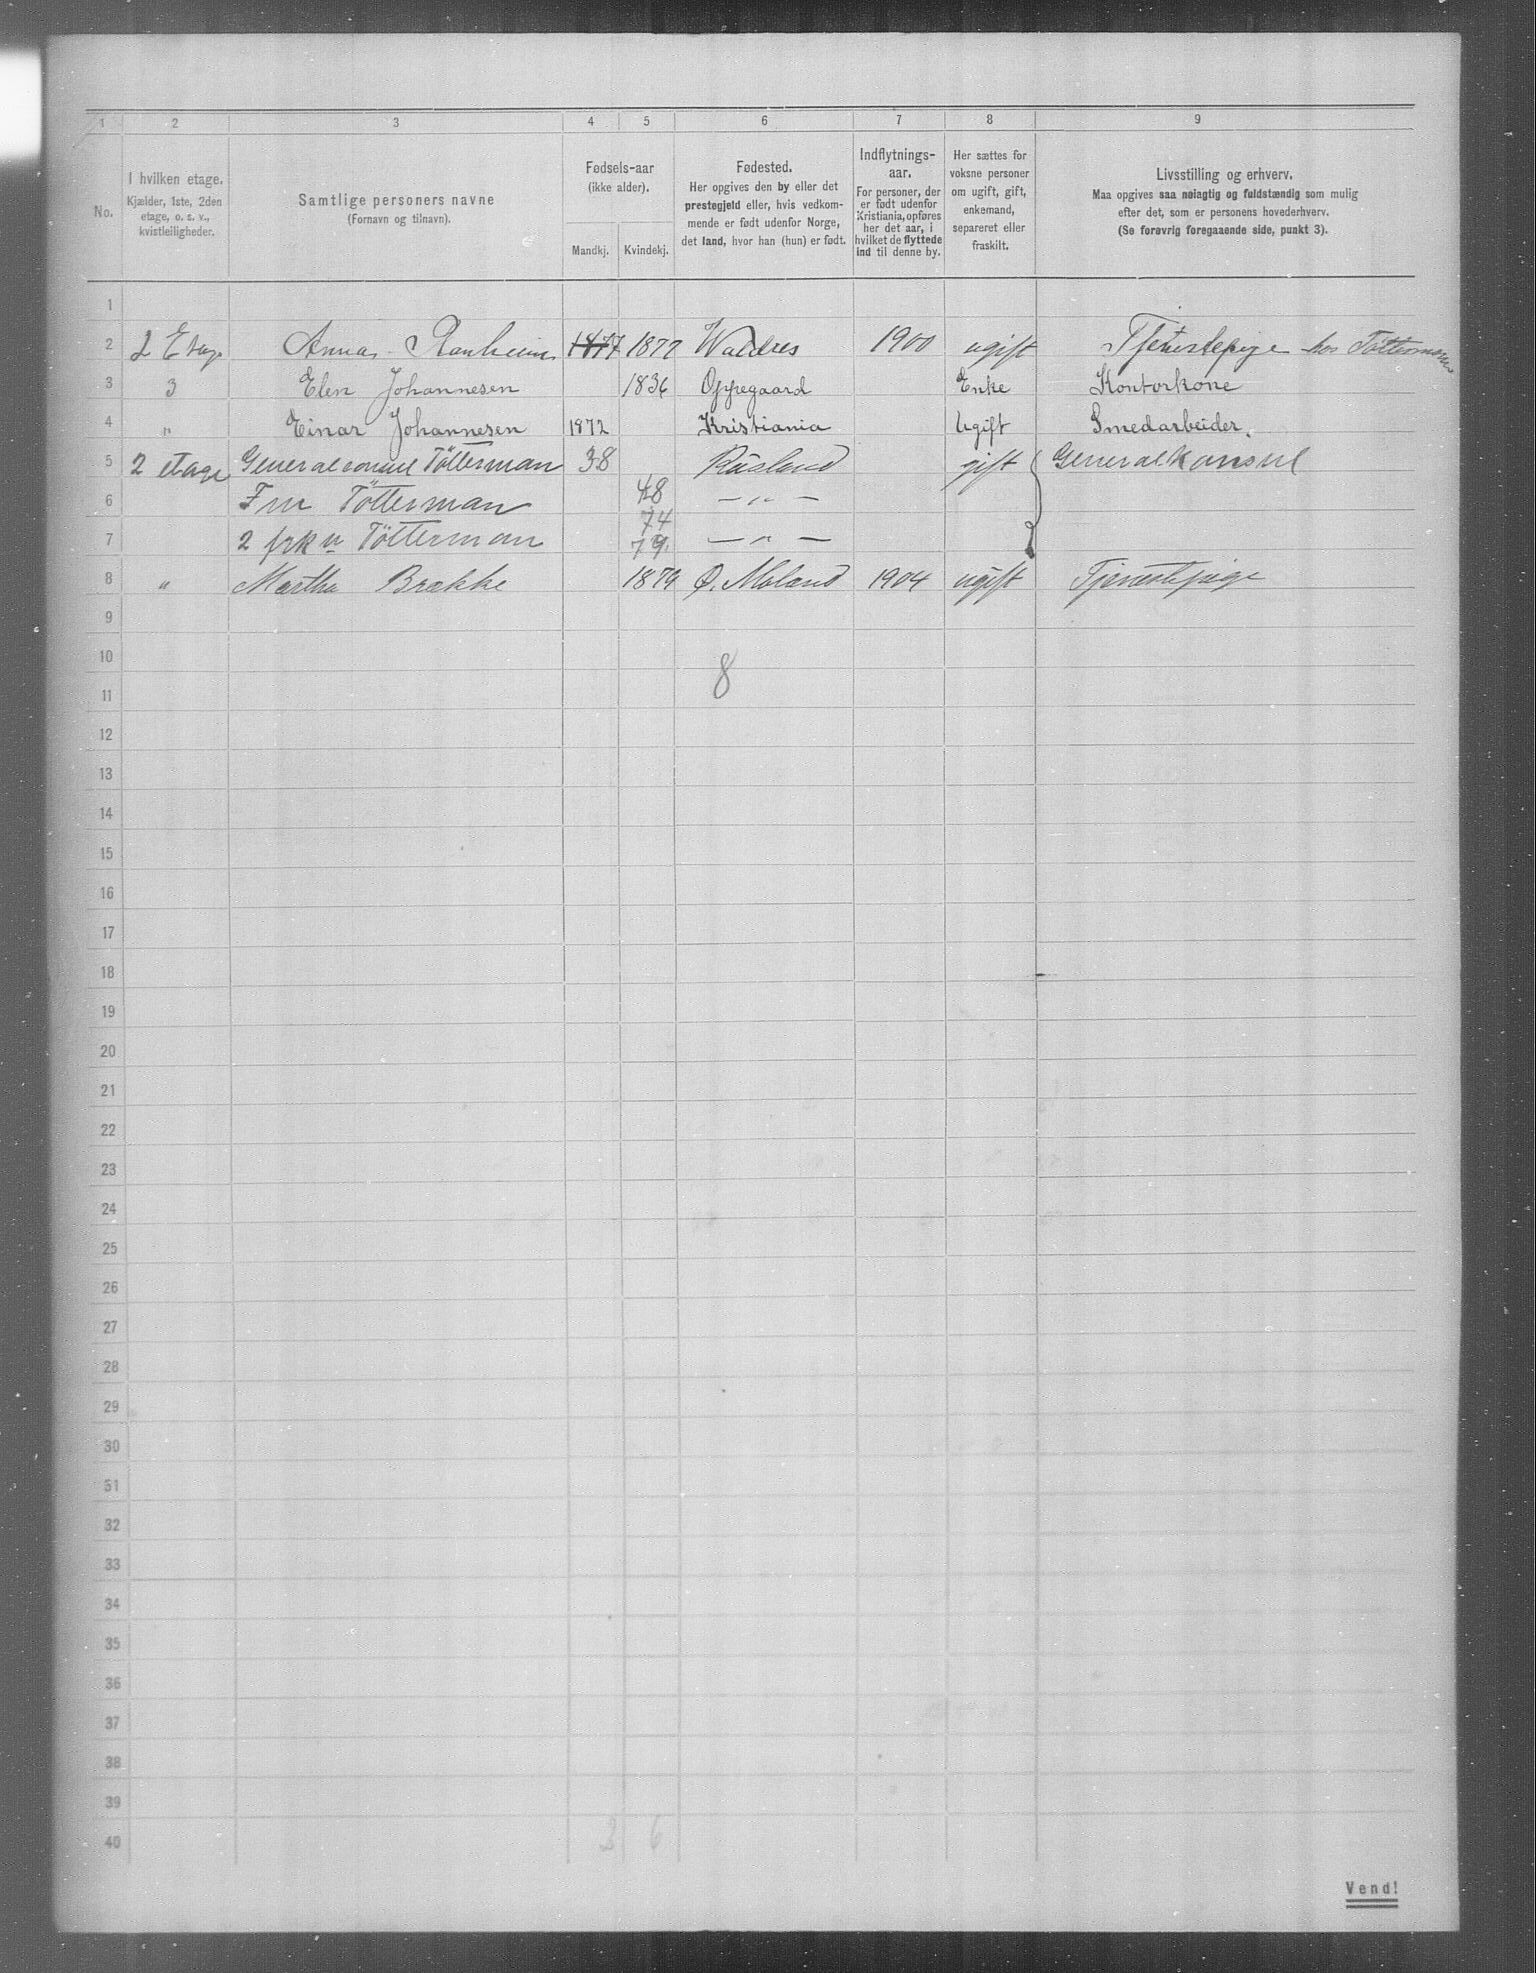 1 2 3 4 5 6 7 8 9
No.
I hvilken etage.
Kjælder, 1ste, 2den
etage, o. s. v.,
kvistleiligheder.
Samtlige personers navne
(Fornavn og tilnavn).
Fødsels-aar
(ikke alder).
Mandkj. Kvindekj.
Fødested.
Her opgives den by eller det
prestegjeld eller, hvis vedkom-
mende er født udenfor Norge,
det land, hvor han (hun) er født.
Indflytnings-
aar.
For personer, der
er født udenfor
Kristiania, opføres
her det aar, i
hvilket de flyttede
ind til denne by.
Her sættes for
voksne personer
om ugift, gift,
enkemand,
separeret eller
fraskilt.
Livsstilling og erhverv.
Maa opgives saa nøiagtig og fuldstændig som mulig
efter det, som er personens hovederhverv.
(Se forøvrig foregaaende side, punkt 3).
1
2 2 Etage Anna Ranheim 1877 1877 Waldres 1900 ugift Tjenestepige hos Tötterman
3 3 Elen Johannesen 1836 Oppegaard Enke Kontorkone
4 " Einar Johannesen 1872 Kristiania Ugift Smedarbeider.
5 2 etage Generalconsul Tötterman 38 Rusland gift Generalkonsul
6 Fru Tötterman 48 — " —
7 2 frkn Tötterman 74 79. — " —
8 " Martha Brakke 1879 Ø. Moland 1904 ugift Tjenestepige
9
10
8
11
12
13
14
15
16
17
18
19
20
21
22
23
24
25
26
27
28
29
30
31
32
33
34
35
36
37
38
39
40 2 6
Vend!